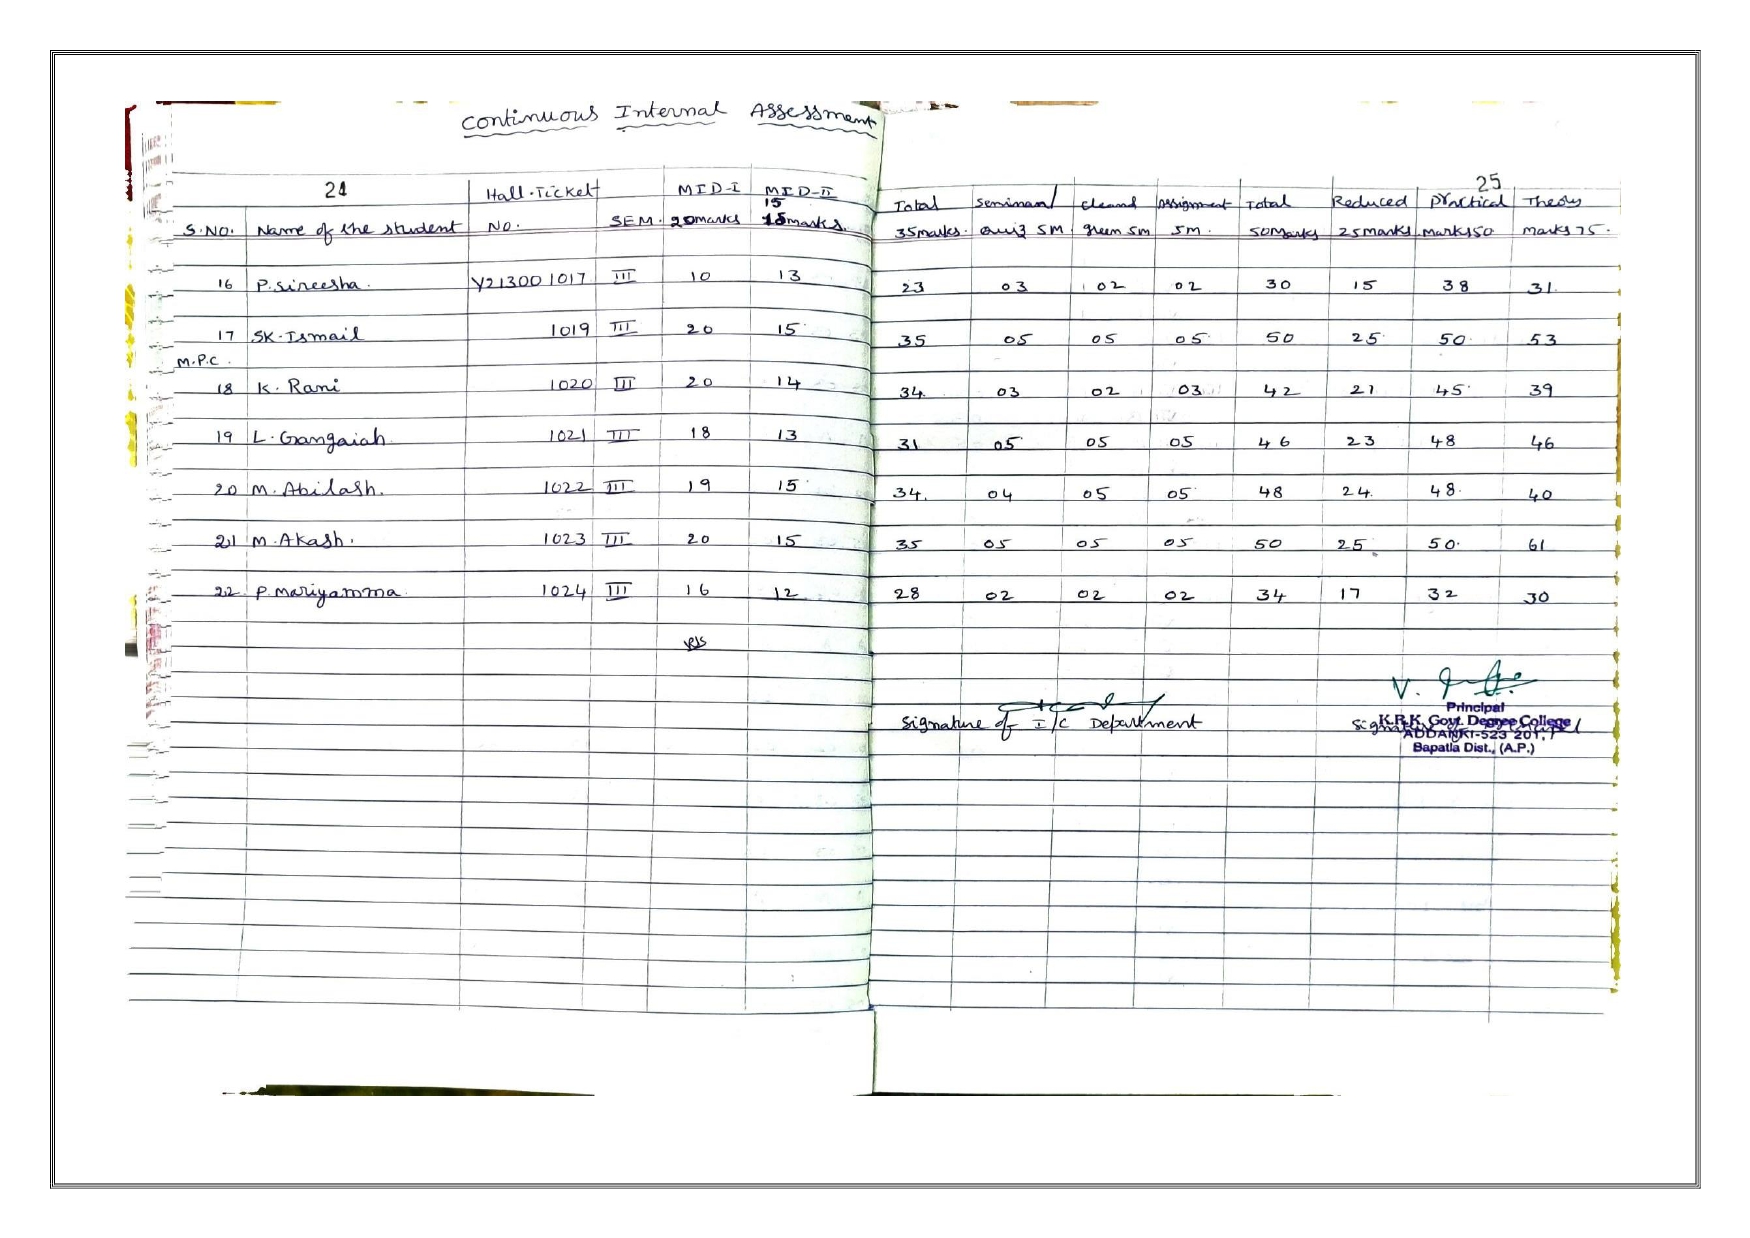 Continuous Internal Assessment
24 Hall.Ticket MID-I MID-II 25
15
Total Seminar/ Clean & Assignment Total Reduced Practical Theory
S.NO. Name of the student NO. SEM. 20marks 15marks. 35marks. Quiz 5M green 5m 5m. 50Marks 25marks marks50 marks 75.
16 P.Sireesha. Y213001017 III 10 13 23 03 02 02 30 15 38 31.
17 SK.Ismail 1019 III 20 15 35 05 05 05 50 25 50 53
M.P.C.
18 K. Rani 1020 III 20 14 34. 03 02 03 42 21 45 39
19 L.Gangaiah 1021 III 18 13 31 05 05 05 46 23 48 46
20 M.Abilash. 1022 III 19 15 34. 04 05 05 48 24. 48. 40
21 M.Akash. 1023 III 20 15 35 05 05 05 50 25 50. 61
22 P.Mariyamma. 1024 III 16 12 28 02 02 02 34 17 32 30
Signature of I/C Department
Principal
K.R.K. Govt. Degree College
ADDANKI-523 201,
Bapatla Dist., (A.P.)